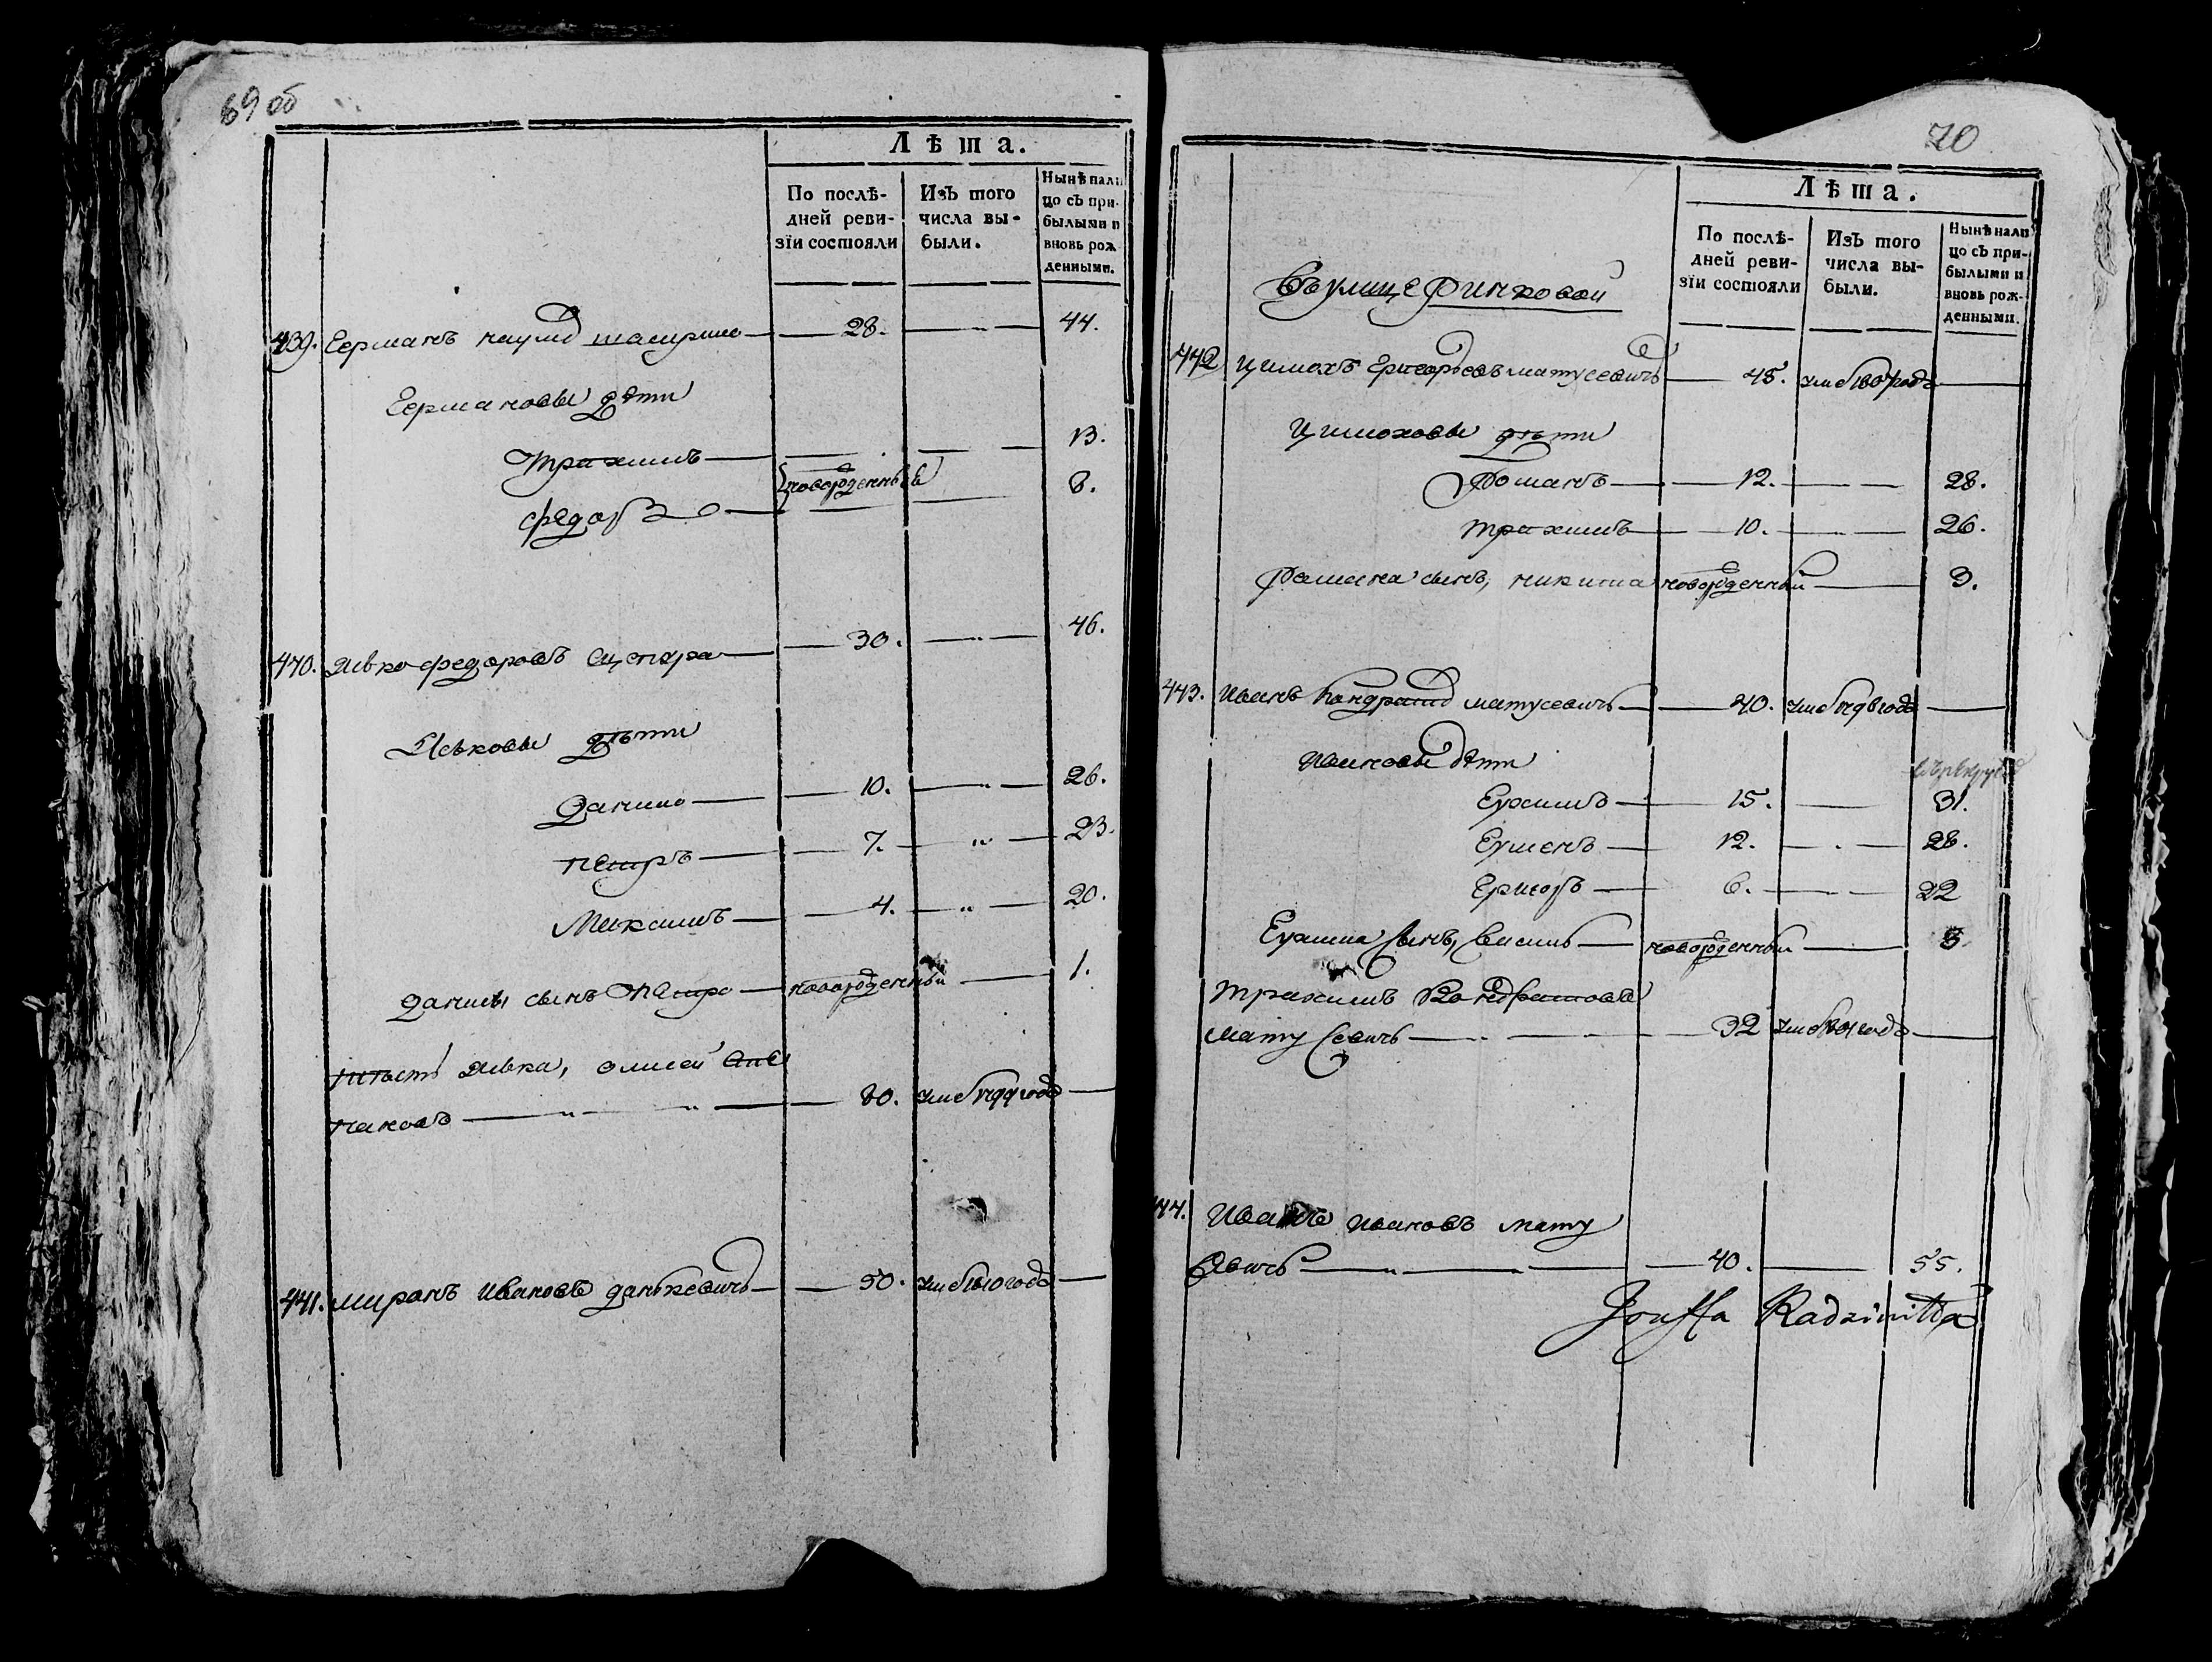 69 об
Лѣта.
По послѣ-
дней реви-
зіи состояли
Изъ того
числа вы-
были.
Нынѣ нали
цо съ при-
былыми и
вновь рож
денными.
439. Германъ 28. 44.
Германовы дѣти
Трахимъ 13.
новорожденный
Федоръ 8.
440. Яско федоровъ 30. 46.
Яськовы дѣти
Данило 10. 26.
Петръ 7. 23.
Максимъ 4. 20.
Данилы сынъ Петръ новорожденный 1.
тѣсть Яска, Олисей Сте
пановъ 80. умеръ 1799 года
441. Миранъ Ивановъ данкевичъ 50. умеръ 1810 года
70
Лѣта.
По послѣ-
дней реви-
зіи состояли
Изъ того
числа вы-
были.
Нынѣ нали
цо съ при-
былыми и
вновь рож-
денными.
Въ улице Финковой
442 Цимохъ Григорьевъ матусевичъ 45. умеръ 1807 года
Цимоховы дѣти
Романъ 12. 28.
Трахимъ 10. 26.
Романа сынъ, никита новорожденный 3.
443. Иванъ Кондратов матусевичъ 40. умеръ 1798 года
Ивановы дѣти
Ерхимъ 15. 31.
Гушенъ 12. 28.
Григоръ 6. 22
Ерхима сынъ, Василь новорожденный 3.
Трахимъ Кондратовъ
матусевичъ 32 умеръ 1801 года
444. Иванъ Ивановъ мату
севичъ 40. 55.